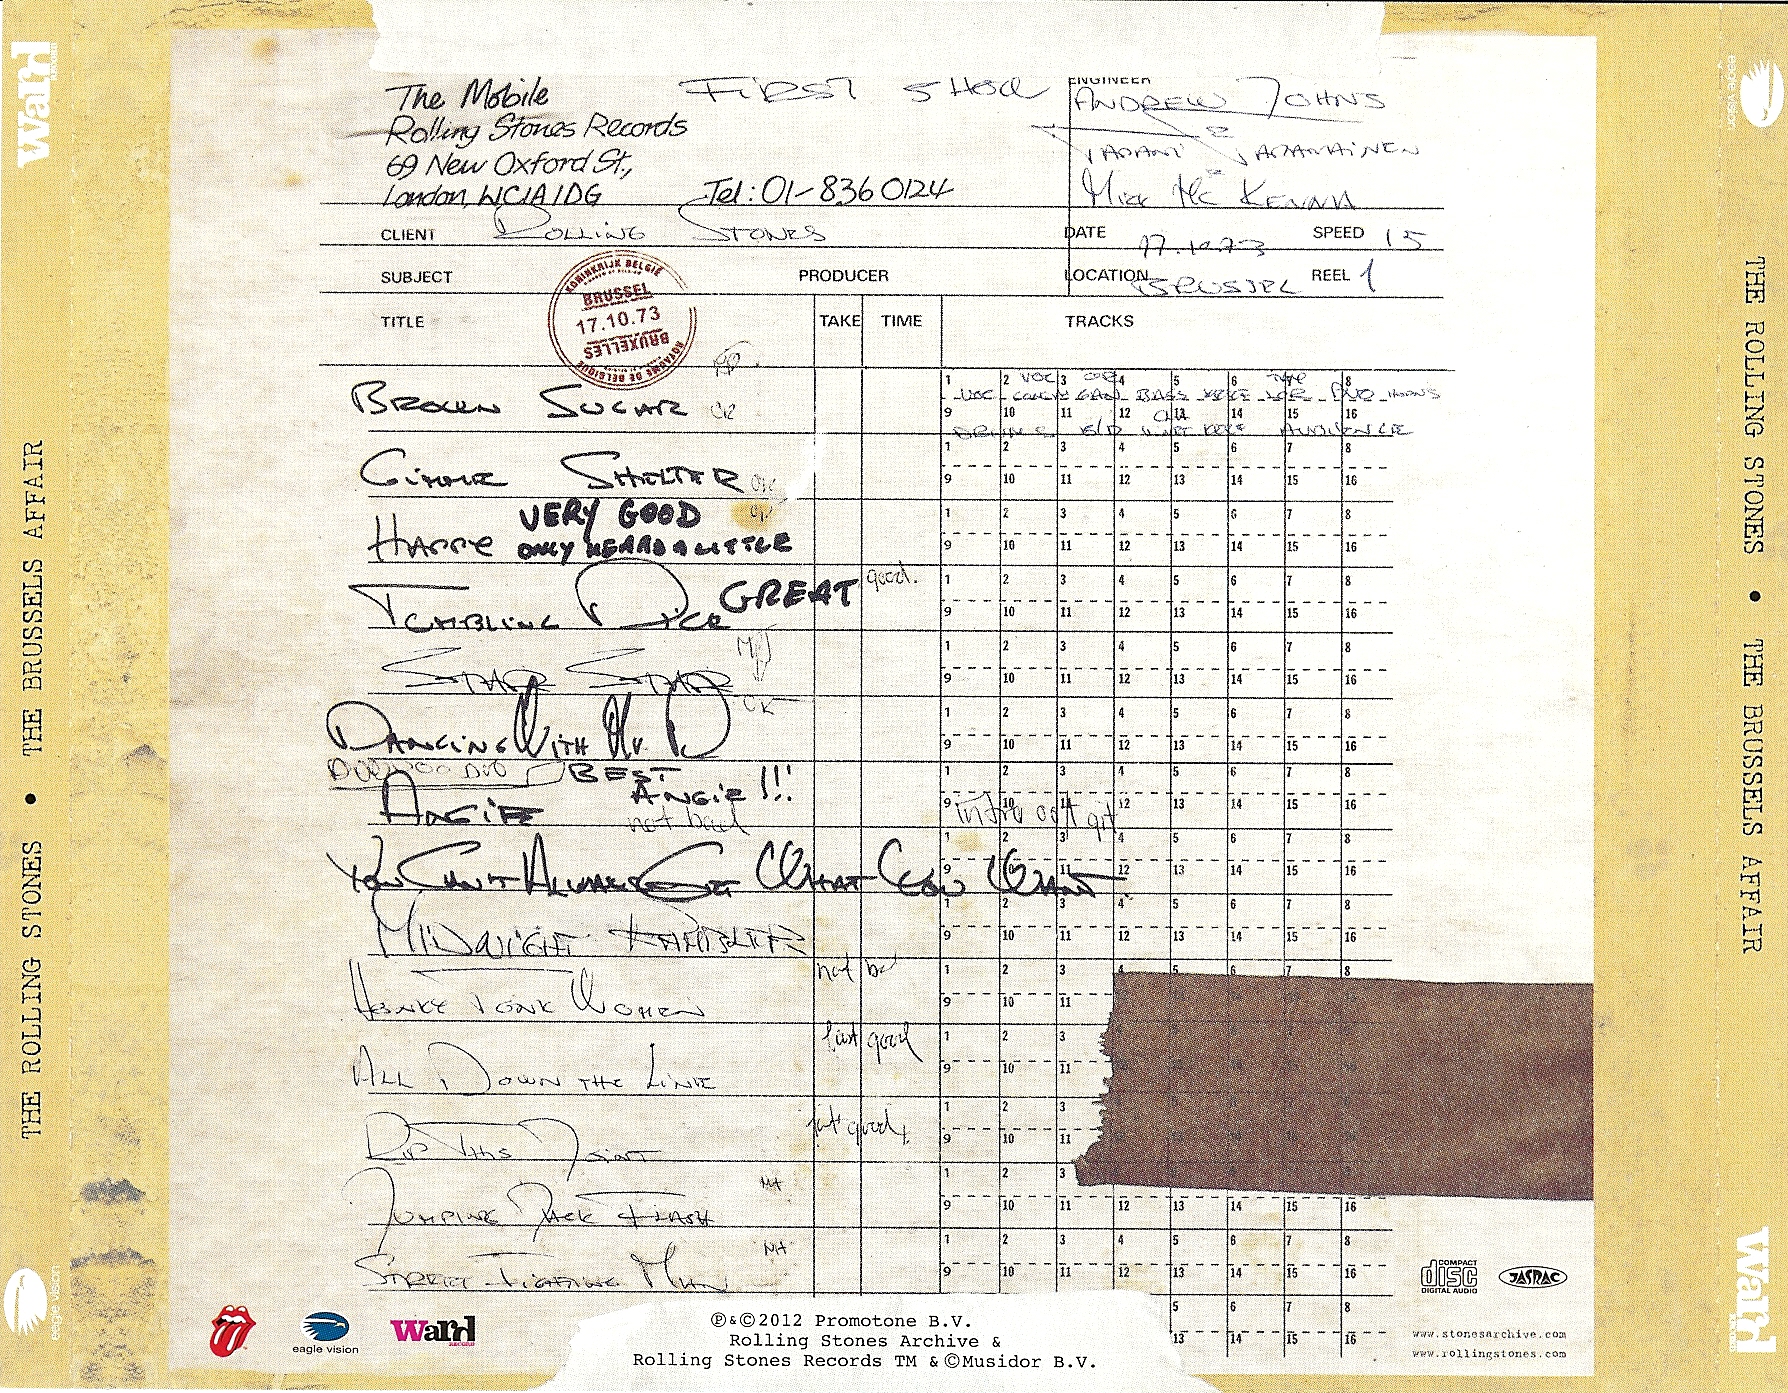 Ward
THE ROLLING STONES • THE BRUSSELS AFFAIR
eagle vision
The Mobile
Rolling Stones Records
69 New Oxford St.,
London, WC1A 1DG
Tel: 01-836 0124
FIRST SHOW
ENGINEER
ANDREW JOHNS
TAPANI TAPANAINEN
Mick McKENNA
CLIENT ROLLING STONES
DATE 17.10.73 SPEED 15
SUBJECT PRODUCER LOCATION BRUSSEL REEL 1
KONINKRIJK BELGIE
BRUSSEL
17.10.73
BRUXELLES
ROYAUME DE BELGIQUE
TITLE TAKE TIME TRACKS
1 2 3 4 5 6 7 8
9 10 11 12 13 14 15 16
BROWN SUGAR OK
DRUMS AUDIENCE
GIMME SHELTER OK
VERY GOOD
HAPPY ONLY HEARD A LITTLE
TUMBLING DICE GREAT good.
STAR STAR
OK
DANCING WITH Mr. D
DOO DOO DOO
BEST
ANGIE !!!
ANGIE not bad intro out git
YOU CAN'T ALWAYS GET WHAT YOU WANT
MIDNIGHT RAMBLER
HONKY TONK WOMEN not bad
ALL DOWN THE LINE fast good
RIP THIS JOINT fast good
JUMPING JACK FLASH NA
STREET FIGHTING MAN NA
eagle vision
Ward
RECORDS
℗&©2012 Promotone B.V.
Rolling Stones Archive &
Rolling Stones Records TM & ©Musidor B.V.
COMPACT
disc
DIGITAL AUDIO
JASRAC
www.stonesarchive.com
www.rollingstones.com
eagle vision
THE ROLLING STONES • THE BRUSSELS AFFAIR
Ward